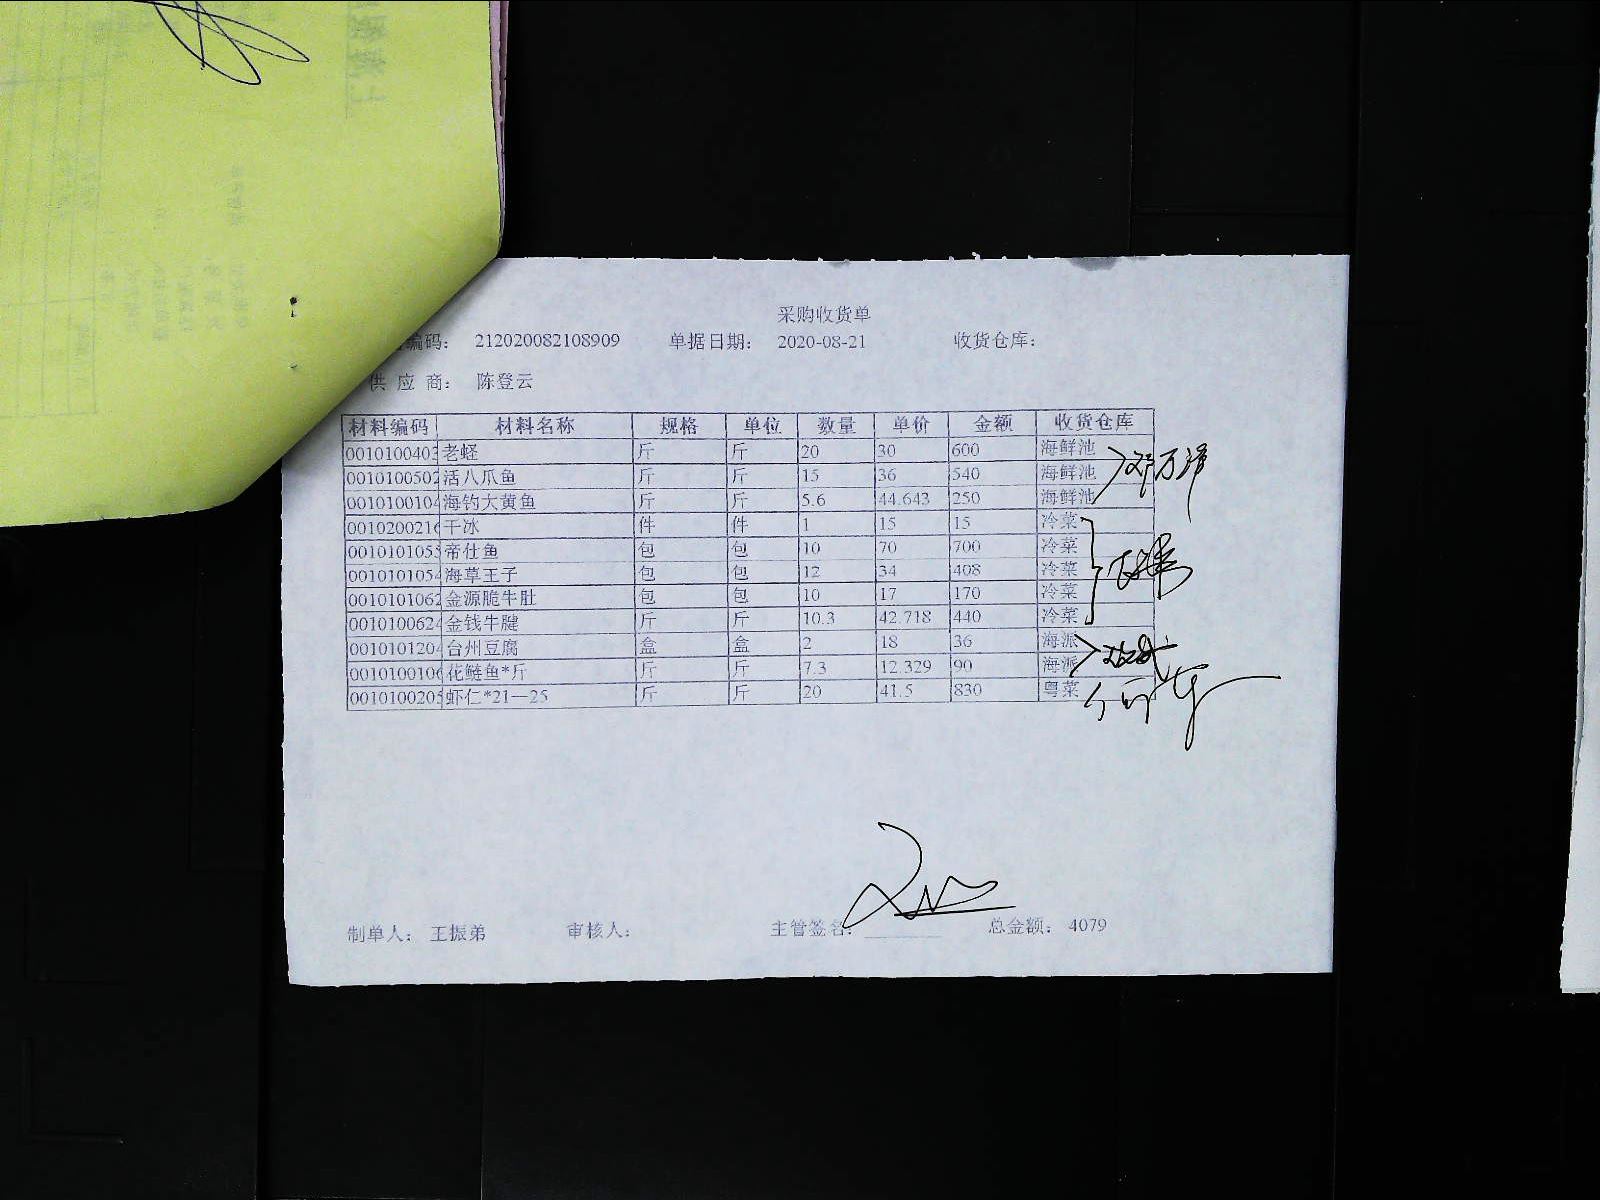 采购收货单
编码： 212020082108909 单据日期： 2020-08-21 收货仓库：
供 应 商： 陈登云
材料编码 材料名称 规格 单位 数量 单价 金额 收货仓库
0010100403 老蛏 斤 斤 20 30 600 海鲜池
0010100502 活八爪鱼 斤 斤 15 36 540 海鲜池
0010100104 海钓大黄鱼 斤 斤 5.6 44.643 250 海鲜池
0010200216 干冰 件 件 1 15 15 冷菜
0010101055 帝仕鱼 包 包 10 70 700 冷菜
0010101054 海草王子 包 包 12 34 408 冷菜
0010101062 金源脆牛肚 包 包 10 17 170 冷菜
0010100624 金钱牛腱 斤 斤 10.3 42.718 440 冷菜
0010101204 台州豆腐 盒 盒 2 18 36 海派
0010100106 花鲢鱼*斤 斤 斤 7.3 12.329 90 海派
0010100205 虾仁*21—25 斤 斤 20 41.5 830 粤菜
制单人： 王振弟 审核人： 主管签名： 总金额： 4079